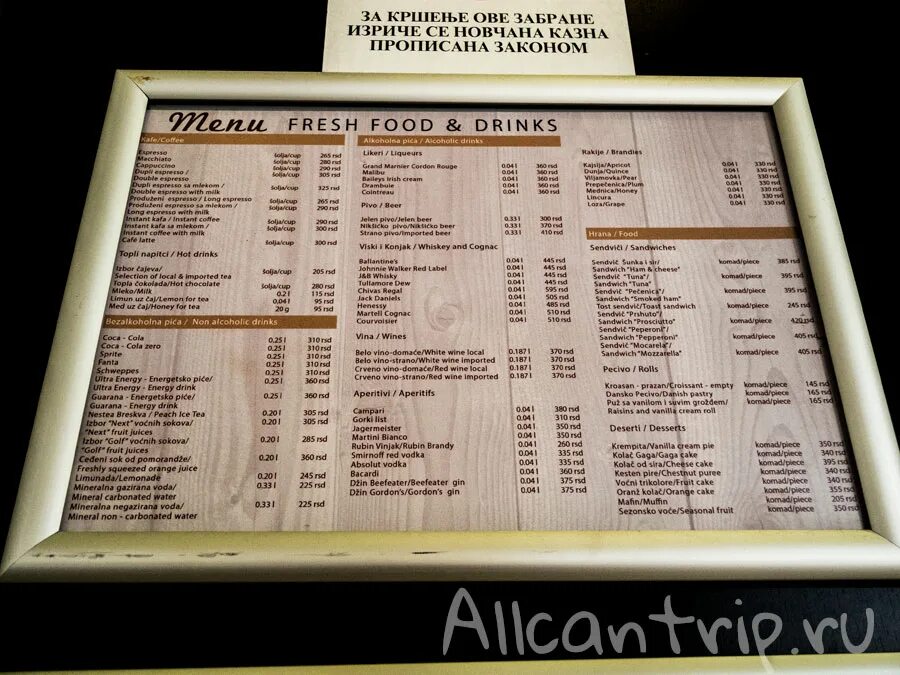 ЗА КРШЕЊЕ ОВЕ ЗАБРАНЕ
ИЗРИЧЕ СЕ НОВЧАНА КАЗНА
ПРОПИСАНА ЗАКОНОМ
Menu FRESH FOOD & DRINKS
Kafe/Coffee
Espresso šolja/cup 265 rsd
Macchiato šolja/cup 280 rsd
Cappuccino šolja/cup 290 rsd
Dupli espresso / šolja/cup 305 rsd
Double espresso
Dupli espresso sa mlekom / šolja/cup 325 rsd
Double espresso with milk
Produženi espresso / Long espresso šolja/cup 265 rsd
Produženi espresso sa mlekom / šolja/cup 290 rsd
Long espresso with milk
Instant kafa / Instant coffee šolja/cup 290 rsd
Instant kafa sa mlekom / šolja/cup 300 rsd
Instant coffee with milk
Café latte šolja/cup 300 rsd
Topli napitci / Hot drinks
Izbor čajeva/ šolja/cup 205 rsd
Selection of local & imported tea
Topla čokolada/Hot chocolate šolja/cup 280 rsd
Mleko/Milk 0.2 l 115 rsd
Limun uz čaj/Lemon for tea 0.04 l 95 rsd
Med uz čaj/Honey for tea 20 g 95 rsd
Bezalkoholna pića / Non alcoholic drinks
Coca - Cola 0.25 l 310 rsd
Coca - Cola zero 0.25 l 310 rsd
Sprite 0.25 l 310 rsd
Fanta 0.25 l 310 rsd
Schweppes 0.25 l 310 rsd
Ultra Energy - Energetsko piće/ 0.25 l 360 rsd
Ultra Energy - Energy drink
Guarana - Energetsko piće/ 0.25 l 360 rsd
Guarana - Energy drink
Nestea Breskva / Peach Ice Tea 0.20 l 305 rsd
Izbor "Next" voćnih sokova/ 0.20 l 305 rsd
"Next" fruit juices
Izbor "Golf" voćnih sokova/ 0.20 l 285 rsd
"Golf" fruit juices
Ceđeni sok od pomorandže/ 0.20 l 360 rsd
Freshly squeezed orange juice
Limunada/Lemonade 0.20 l 245 rsd
Mineralna gazirana voda/ 0.33 l 225 rsd
Mineral carbonated water
Mineralna negazirana voda/ 0.33 l 225 rsd
Mineral non - carbonated water
Alkoholna pića / Alcoholic drinks
Likeri / Liqueurs
Grand Marnier Cordon Rouge 0.04 l 360 rsd
Malibu 0.04 l 360 rsd
Baileys Irish cream 0.04 l 360 rsd
Drambuie 0.04 l 360 rsd
Cointreau 0.04 l 360 rsd
Pivo / Beer
Jelen pivo/Jelen beer 0.33 l 300 rsd
Nikšićko pivo/Nikšićko beer 0.33 l 370 rsd
Strano pivo/Imported beer 0.33 l 410 rsd
Viski i Konjak / Whiskey and Cognac
Ballantine's 0.04 l 445 rsd
Johnnie Walker Red Label 0.04 l 445 rsd
J&B Whisky 0.04 l 445 rsd
Tullamore Dew 0.04 l 445 rsd
Chivas Regal 0.04 l 595 rsd
Jack Daniels 0.04 l 505 rsd
Henessy 0.04 l 485 rsd
Martell Cognac 0.04 l 510 rsd
Courvoisier 0.04 l 510 rsd
Vina / Wines
Belo vino-domaće/White wine local 0.187 l 370 rsd
Belo vino-strano/White wine imported 0.187 l 370 rsd
Crveno vino-domaće/Red wine local 0.187 l 370 rsd
Crveno vino-strano/Red wine imported 0.187 l 370 rsd
Aperitivi / Aperitifs
Campari 0.04 l 380 rsd
Gorki list 0.04 l 310 rsd
Jagermeister 0.04 l 350 rsd
Martini Bianco 0.04 l 350 rsd
Rubin Vinjak/Rubin Brandy 0.04 l 260 rsd
Smirnoff red vodka 0.04 l 335 rsd
Absolut vodka 0.04 l 335 rsd
Bacardi 0.04 l 360 rsd
Džin Beefeater/Beefeater gin 0.04 l 375 rsd
Džin Gordon's/Gordon's gin 0.04 l 375 rsd
Rakije / Brandies
Kajsija/Apricot 0.04 l 330 rsd
Dunja/Quince 0.04 l 330 rsd
Viljamovka/Pear 0.04 l 330 rsd
Prepečenica/Plum 0.04 l 330 rsd
Mednica/Honey 0.04 l 330 rsd
Lincura 0.04 l 330 rsd
Loza/Grape 0.04 l 330 rsd
Hrana / Food
Sendviči / Sandwiches
Sendvič Šunka i sir/ komad/piece 385 rsd
Sandwich "Ham & cheese"
Sendvič "Tuna"/ komad/piece 395 rsd
Sandwich "Tuna"
Sendvič "Pečenica"/ komad/piece 395 rsd
Sandwich "Smoked ham"
Tost sendvič/Toast sandwich komad/piece 245 rsd
Sendvič "Prshuto"/ komad/piece 420 rsd
Sandwich "Prosciutto"
Sendvič "Peperoni"/ komad/piece 405 rsd
Sandwich "Pepperoni"
Sendvič "Mocarela"/ komad/piece 405 rsd
Sandwich "Mozzarella"
Pecivo / Rolls
Kroasan - prazan/Croissant - empty komad/piece 145 rsd
Dansko Pecivo/Danish pastry komad/piece 165 rsd
Puž sa vanilom i suvim grožđem/ komad/piece 165 rsd
Raisins and vanilla cream roll
Deserti / Desserts
Krempita/Vanilla cream pie komad/piece 350 rsd
Kolač Gaga/Gaga cake komad/piece 340 rsd
Kolač od sira/Cheese cake komad/piece 395 rsd
Kesten pire/Chestnut puree komad/piece 340 rsd
Voćni trikolore/Fruit cake komad/piece 340 rsd
Oranž kolač/Orange cake komad/piece 355 rsd
Mafin/Muffin komad/piece 205 rsd
Sezonsko voće/Seasonal fruit komad/piece 350 rsd
Allcantrip.ru